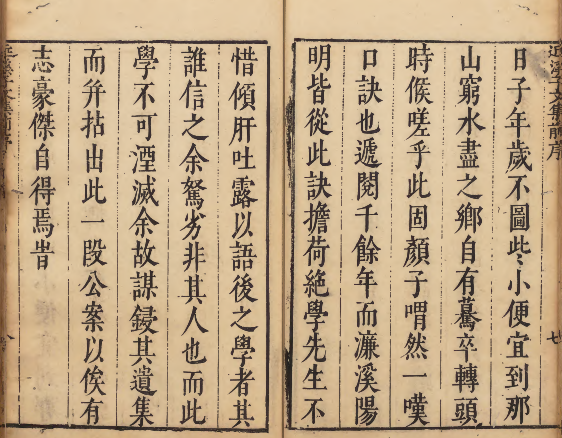 日子年歲不圖些小便宜到那
山窮水盡之鄉自有驀卒轉頭
時候嗟乎此固顏子喟然一嘆
口訣也遞閱千餘年而濂溪陽
明皆從此訣擔荷絕學先生不
惜傾肝吐露以語後之學者其
誰信之余駑劣非其人也而此
學不可湮滅余故謀鋟其遺集
而并拈出此一段公案以俟有
志豪傑自得焉旹